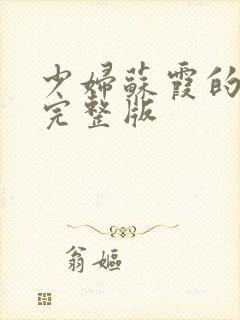 少婦蘇霞的
完整版
翁嫗